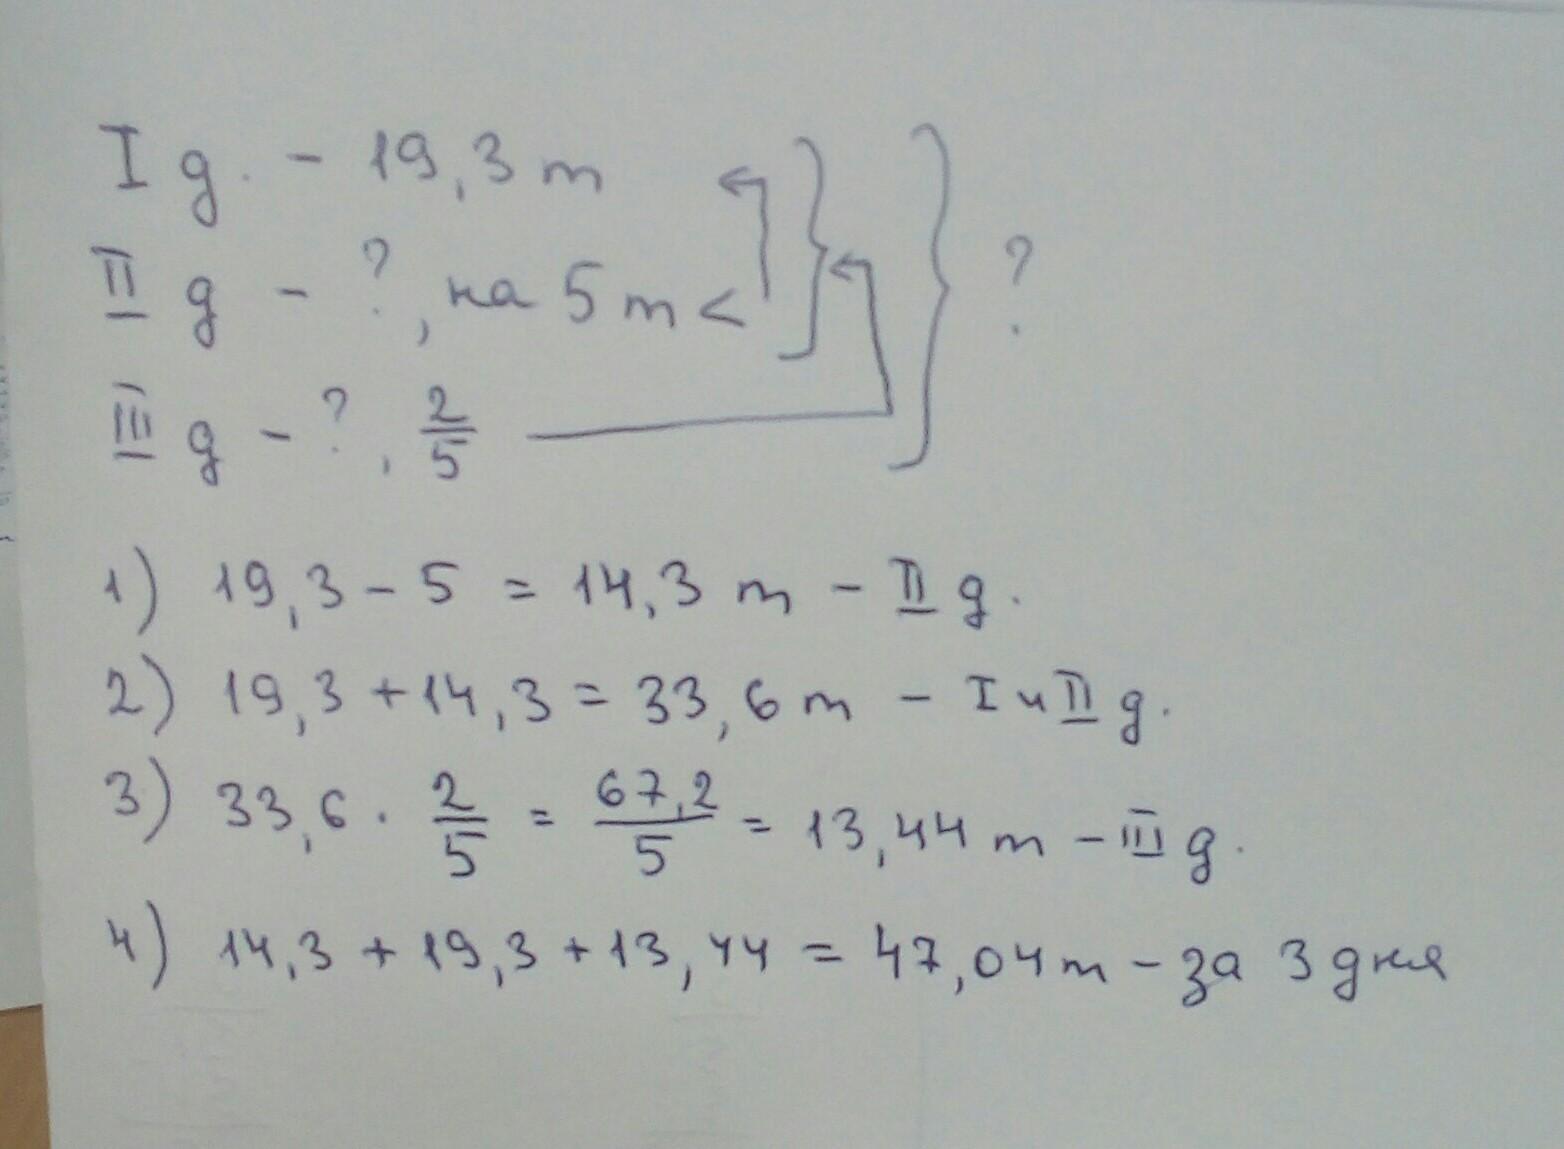 I д. - 19,3 т
II д - ?, на 5 т <
?
III д - ?, 2/5
1) 19,3 - 5 = 14,3 т - II д.
2) 19,3 + 14,3 = 33,6 т - I и II д.
3) 33,6 · 2/5 = 67,2/5 = 13,44 т - III д.
4) 14,3 + 19,3 + 13,44 = 47,04 т - за 3 дня